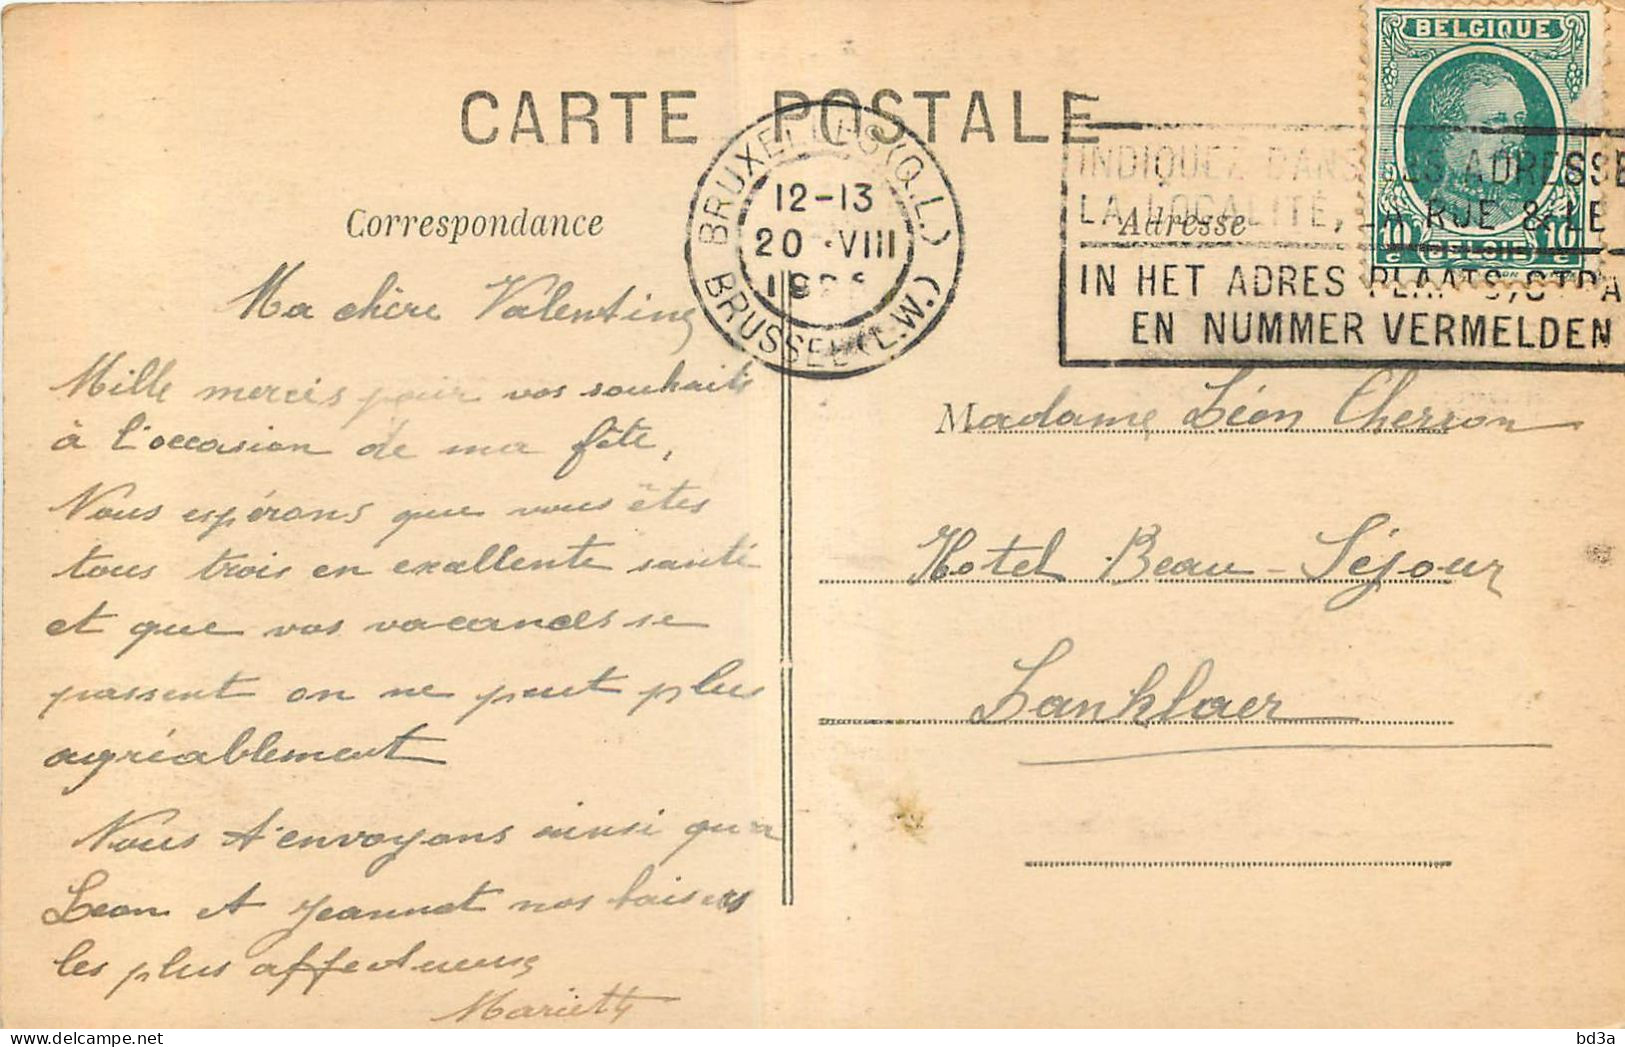 CARTE POSTALE
BELGIQUE
10 c BELGIË 10 c
BRUXELLES (Q.L.)
12-13
20 VIII
BRUSSEL (L.W.)
INDIQUEZ DANS LES ADRESSE
LA LOCALITÉ, LA RUE & LE
IN HET ADRES PLAATS, STRA
EN NUMMER VERMELDEN
Correspondance
Adresse
Ma chère Valentine
Mille mercis pour vos souhaits
à l'occasion de ma fête,
Nous espérons que vous êtes
tous trois en excellente santé
et que vos vacances se
passent on ne peut plus
agréablement
Nous t'envoyons ainsi qu'a
Léon et Jeannot nos baisers
les plus affectueux
Mariette
Madame Léon Cherron
Hotel Beau-Séjour
Lanklaer
bd3a